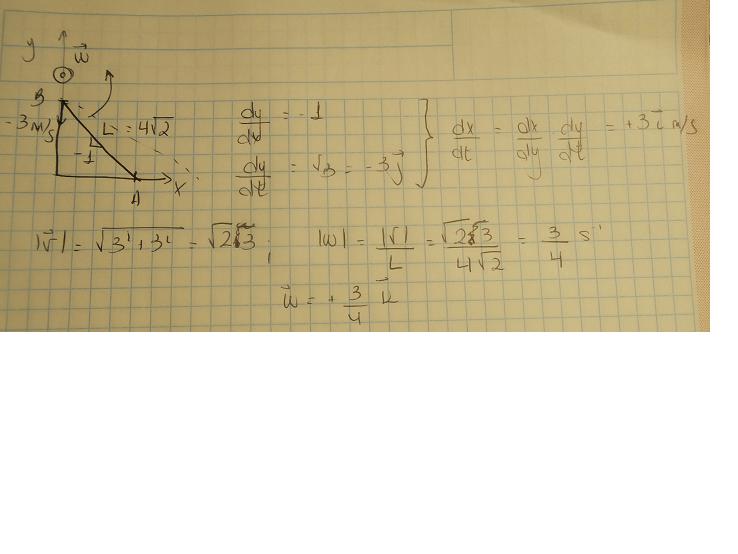 y
w⃗
B
-3 m/s
L = 4√2
-1
A
X
dy/dx = -1
dy/dt = v_B = -3 j⃗
dx/dt = dx/dy dy/dt = +3 i⃗ m/s
|v⃗| = √3² + 3² = √2 3 ; |w| = |v|/L = √2 3 / 4√2 = 3/4 s⁻¹
w⃗ = + 3/4 k⃗